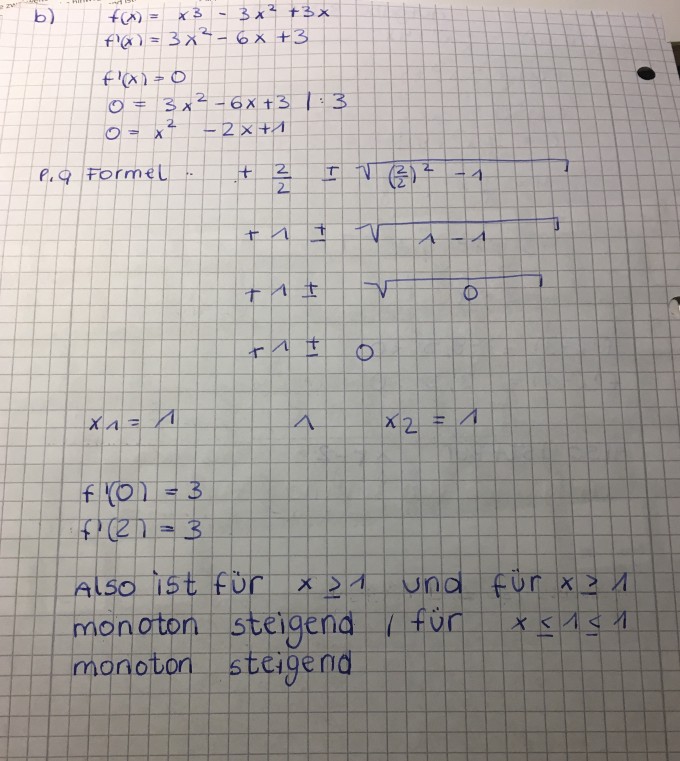 b) f(x) = x3 - 3x² + 3x
f'(x) = 3x² - 6x + 3
f'(x) = 0
0 = 3x² - 6x + 3 | : 3
0 = x² - 2x + 1
P.q Formel .. + 2/2 ± √((2/2)² - 1)
+ 1 ± √(1 - 1)
+ 1 ± √0
+ 1 ± 0
x1 = 1 ∧ x2 = 1
f'(0) = 3
f'(2) = 3
Also ist für x ≥ 1 und für x ≥ 1
monoton steigend , für x ≤ 1 ≤ 1
monoton steigend